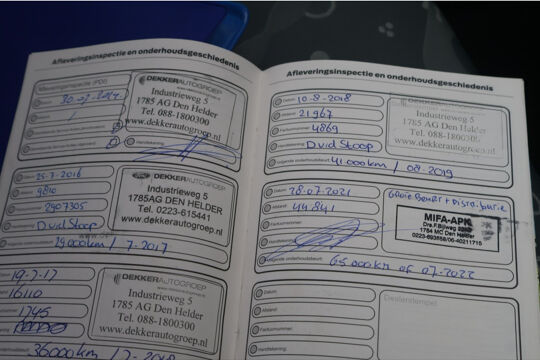 Afleveringsinspectie en onderhoudsgeschiedenis
Afleveringsinspectie (PDI)
DEKKERAUTOGROEP
Industrieweg 5
1785 AG Den Helder
Tel. 088-1800300
www.dekkerautogroep.nl
Handtekening:
25-7-2016
9810
2907305
Dvid Stoop
29000km / 7-2017
DEKKERAUTOGROEP
Industrieweg 5
1785AG DEN HELDER
Tel. 0223-615441
www.dekkerautogroep.nl
19-7-17
16110
1745
36000km / 7-2018
DEKKERAUTOGROEP
Industrieweg 5
1785 AG Den Helder
Tel. 088-1800300
www.dekkerautogroep.nl
Afleveringsinspectie en onderhoudsgeschiedenis
Datum: 10-8-2018
Afstand: 21967
Factuurnummer: 4869
Dvid Stoop
Volgende onderhoudsbeurt: 41000km / 08-2019
Industrieweg 5
1785 AG Den Helder
Tel. 088-1800300
www.dekkerautogroep.nl
Datum: 28-07-2021
Afstand: 44841
Factuurnummer:
Handtekening:
Volgende onderhoudsbeurt: 65000km of 07-2022
Grote Beurt + Distributie
MIFA-APK
1784 MC Den Helder
0223-693858/06-40211715
Datum:
Afstand:
Factuurnummer:
Handtekening:
Dealerstempel